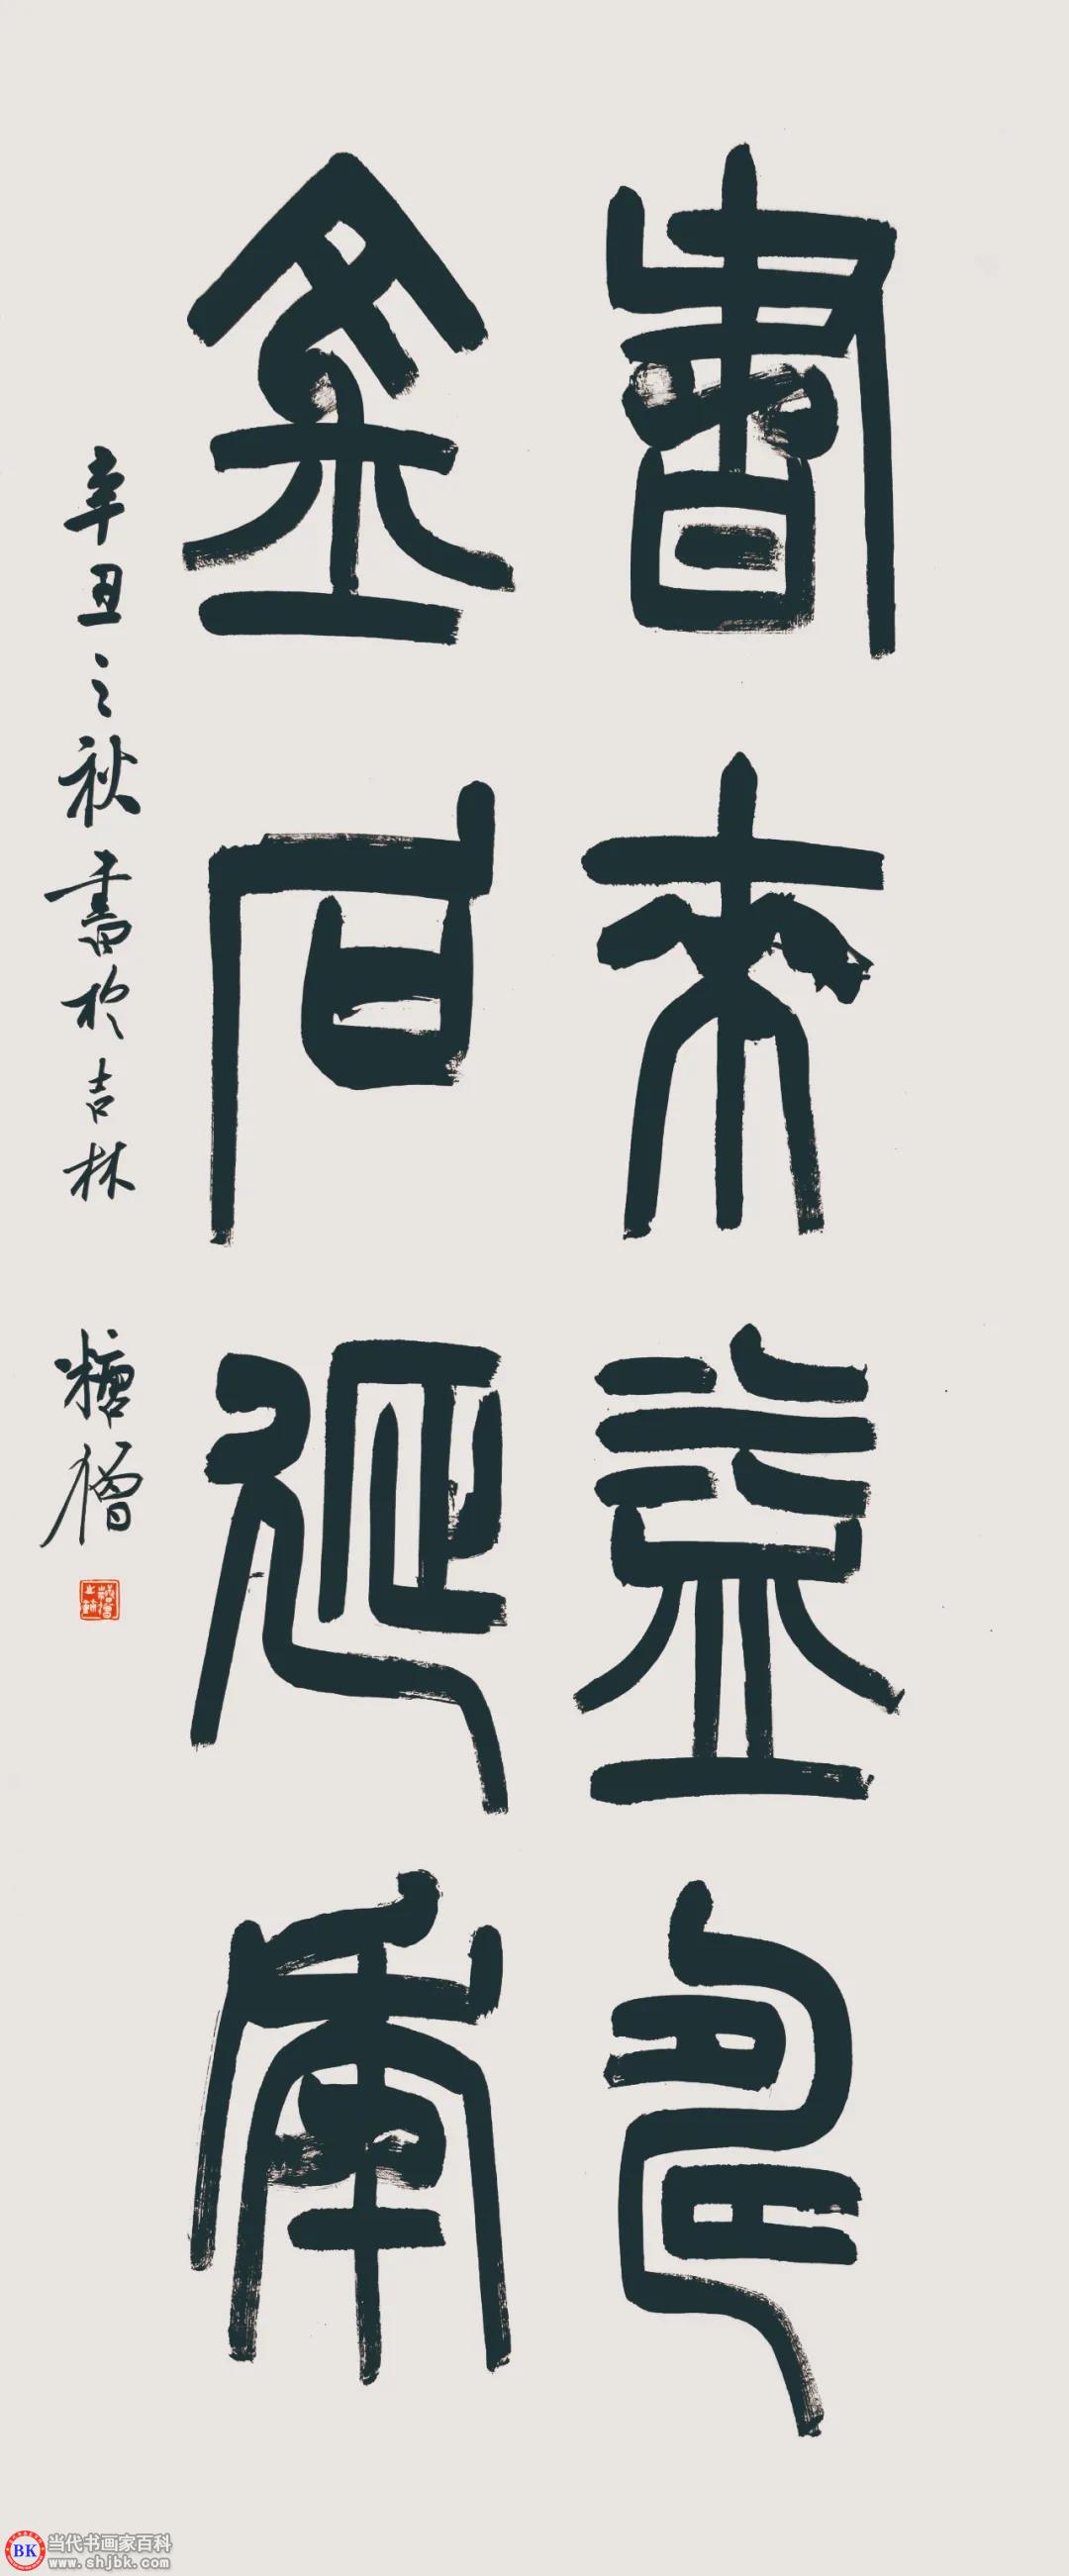 書来益
金石延
辛丑之秋書於吉林 糖僧
BK 当代书画家百科
www.shjbk.com